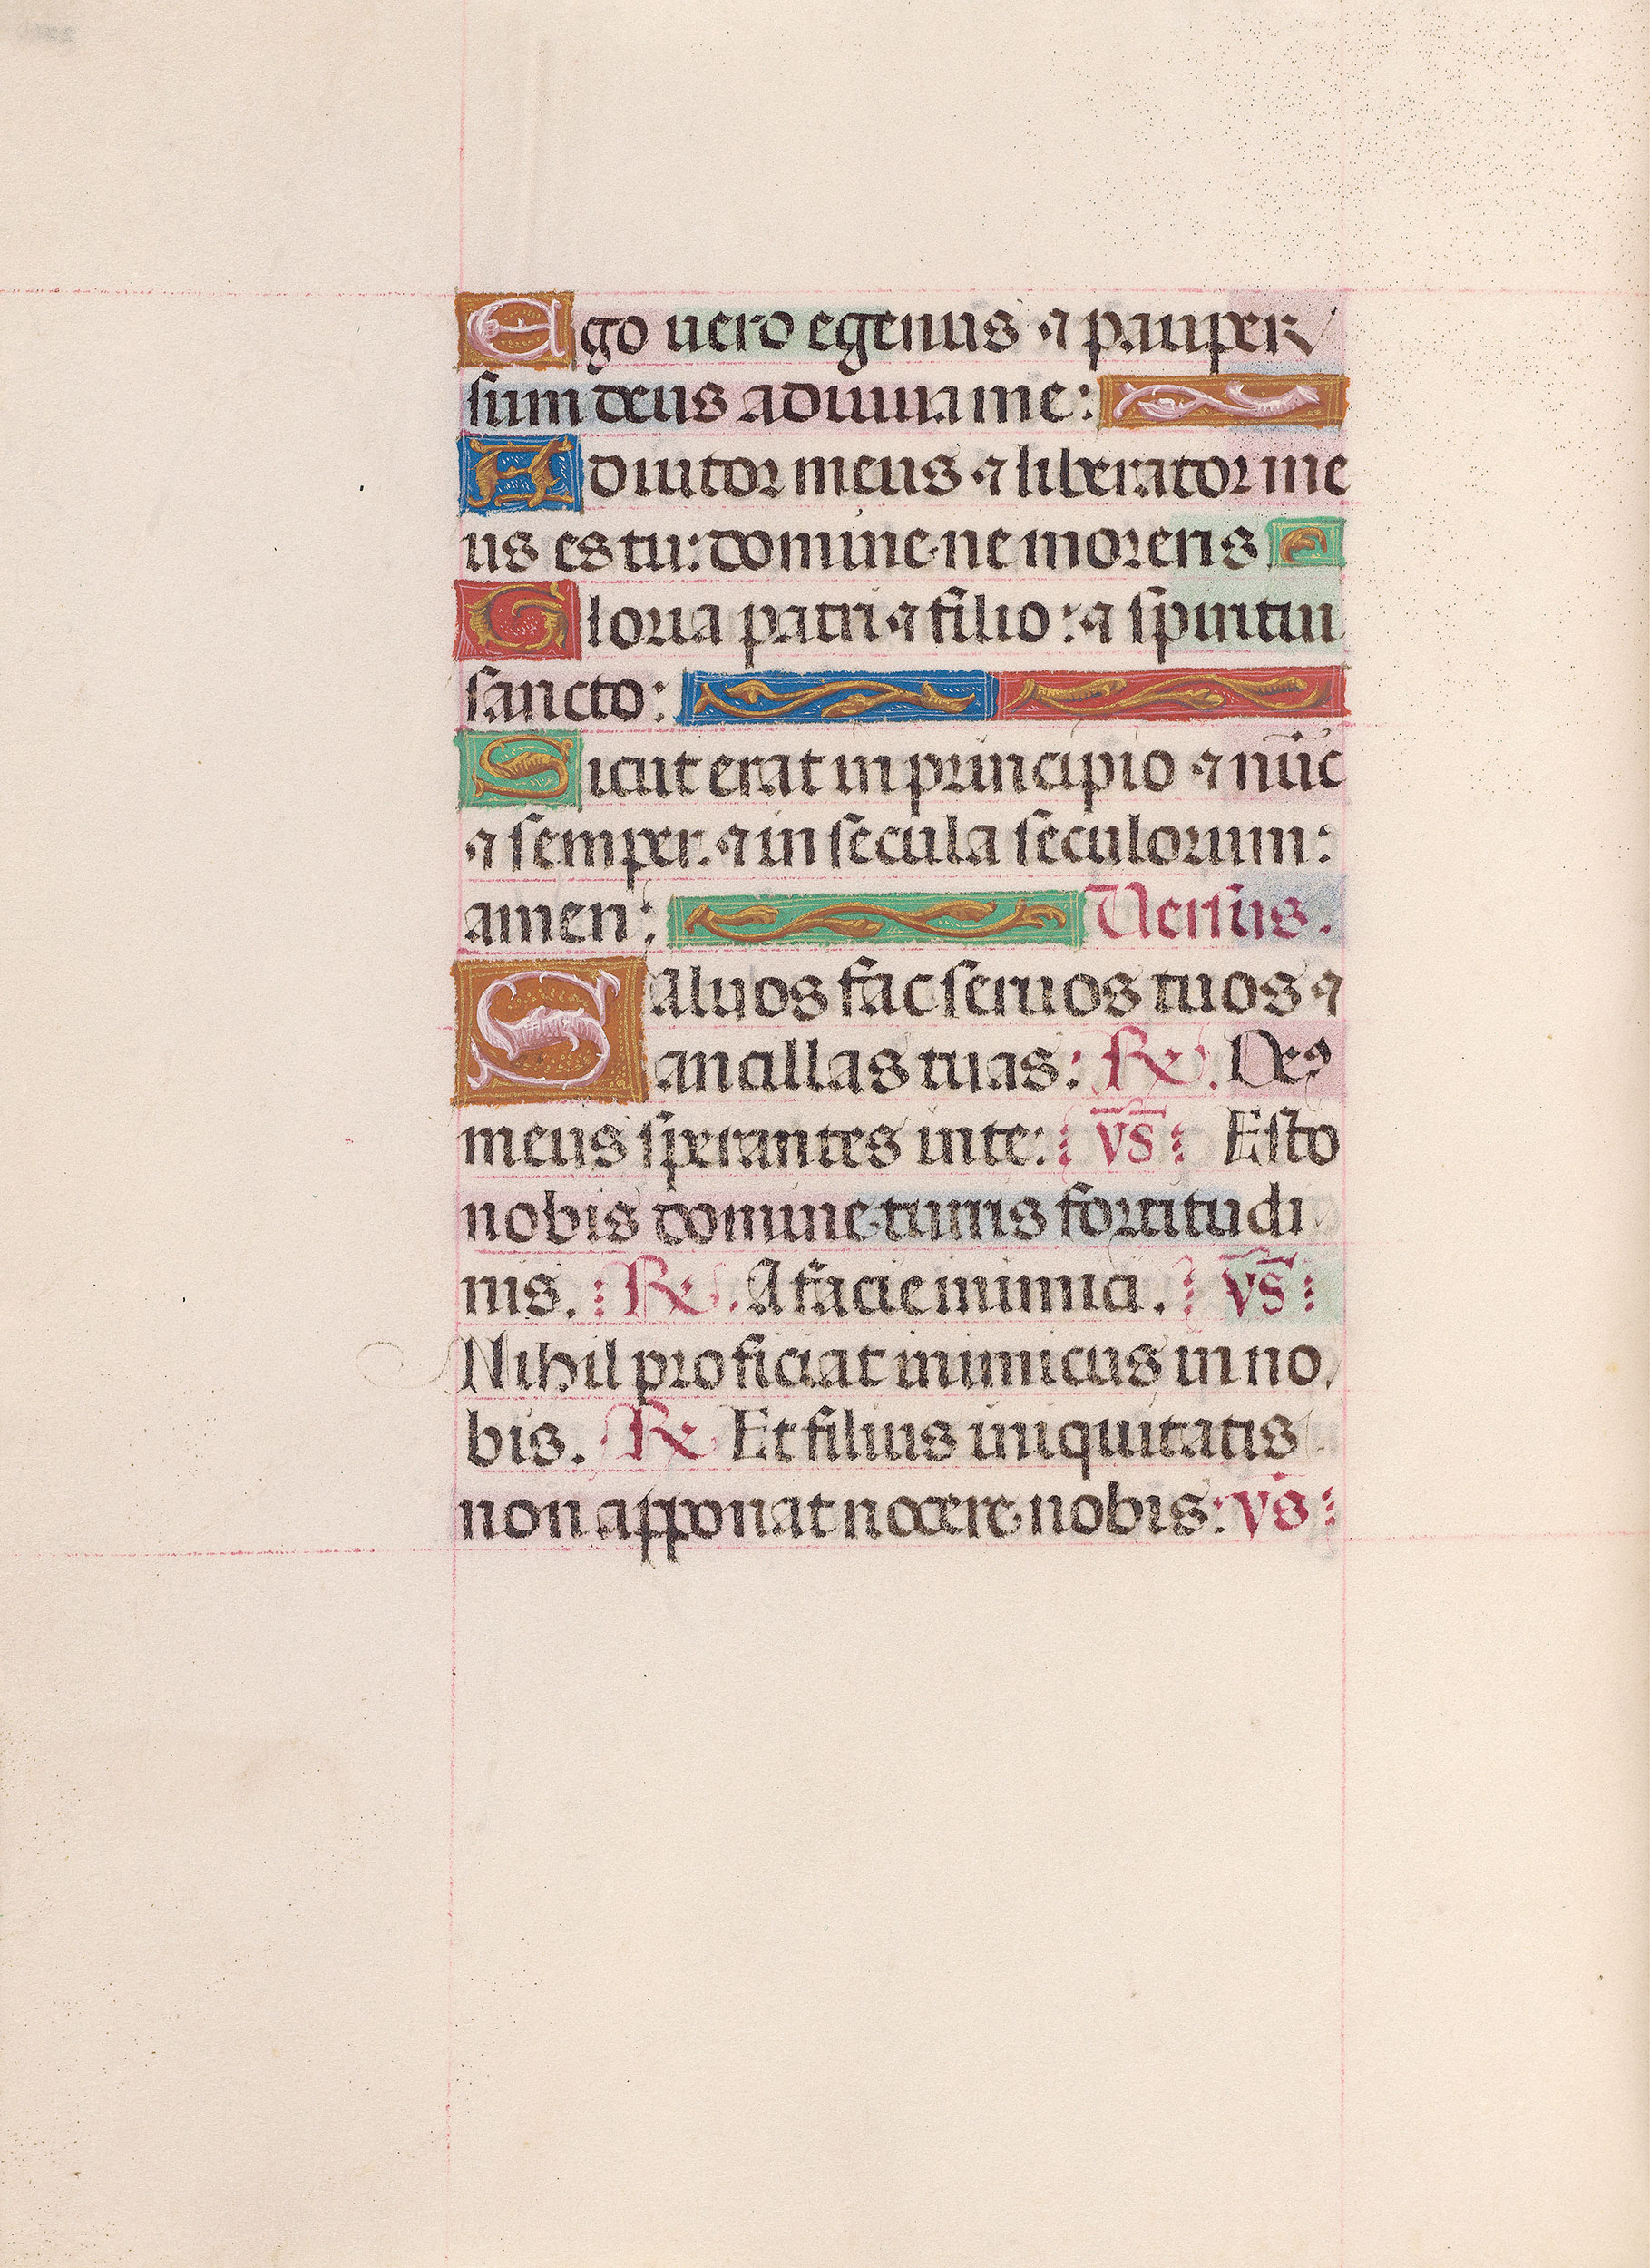 Ego uero egenus ⁊ pauper
sum deus adiuua me:
Adiutor meus ⁊ liberator me
us es tu: domine ne moreris
Gloria patri ⁊ filio: ⁊ spiritui
sancto:
Sicut erat in principio ⁊ nūc
⁊ semper. ⁊ in secula seculorum:
amen: Uersus.
Saluos fac seruos tuos ⁊
ancillas tuas: ℟. Deꝰ
meus sperantes in te: v̄s̄ Esto
nobis domine turris fortitudi
nis. ℟. A facie inimici. v̄s̄
Nihil proficiat inimicus in no
bis. ℟ Et filius iniquitatis
non apponat nocere nobis: vs̄: